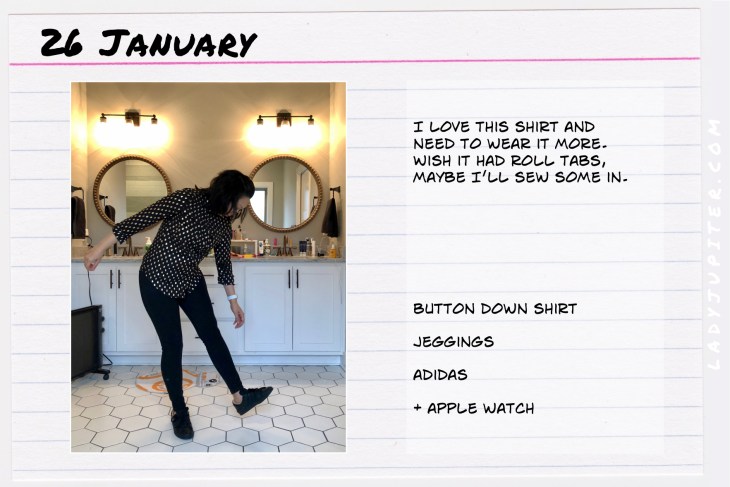 26 January
I LOVE THIS SHIRT AND
NEED TO WEAR IT MORE.
WISH IT HAD ROLL TABS,
MAYBE I'LL SEW SOME IN.
BUTTON DOWN SHIRT
JEGGINGS
ADIDAS
+ APPLE WATCH
LADYJUPITER.COM